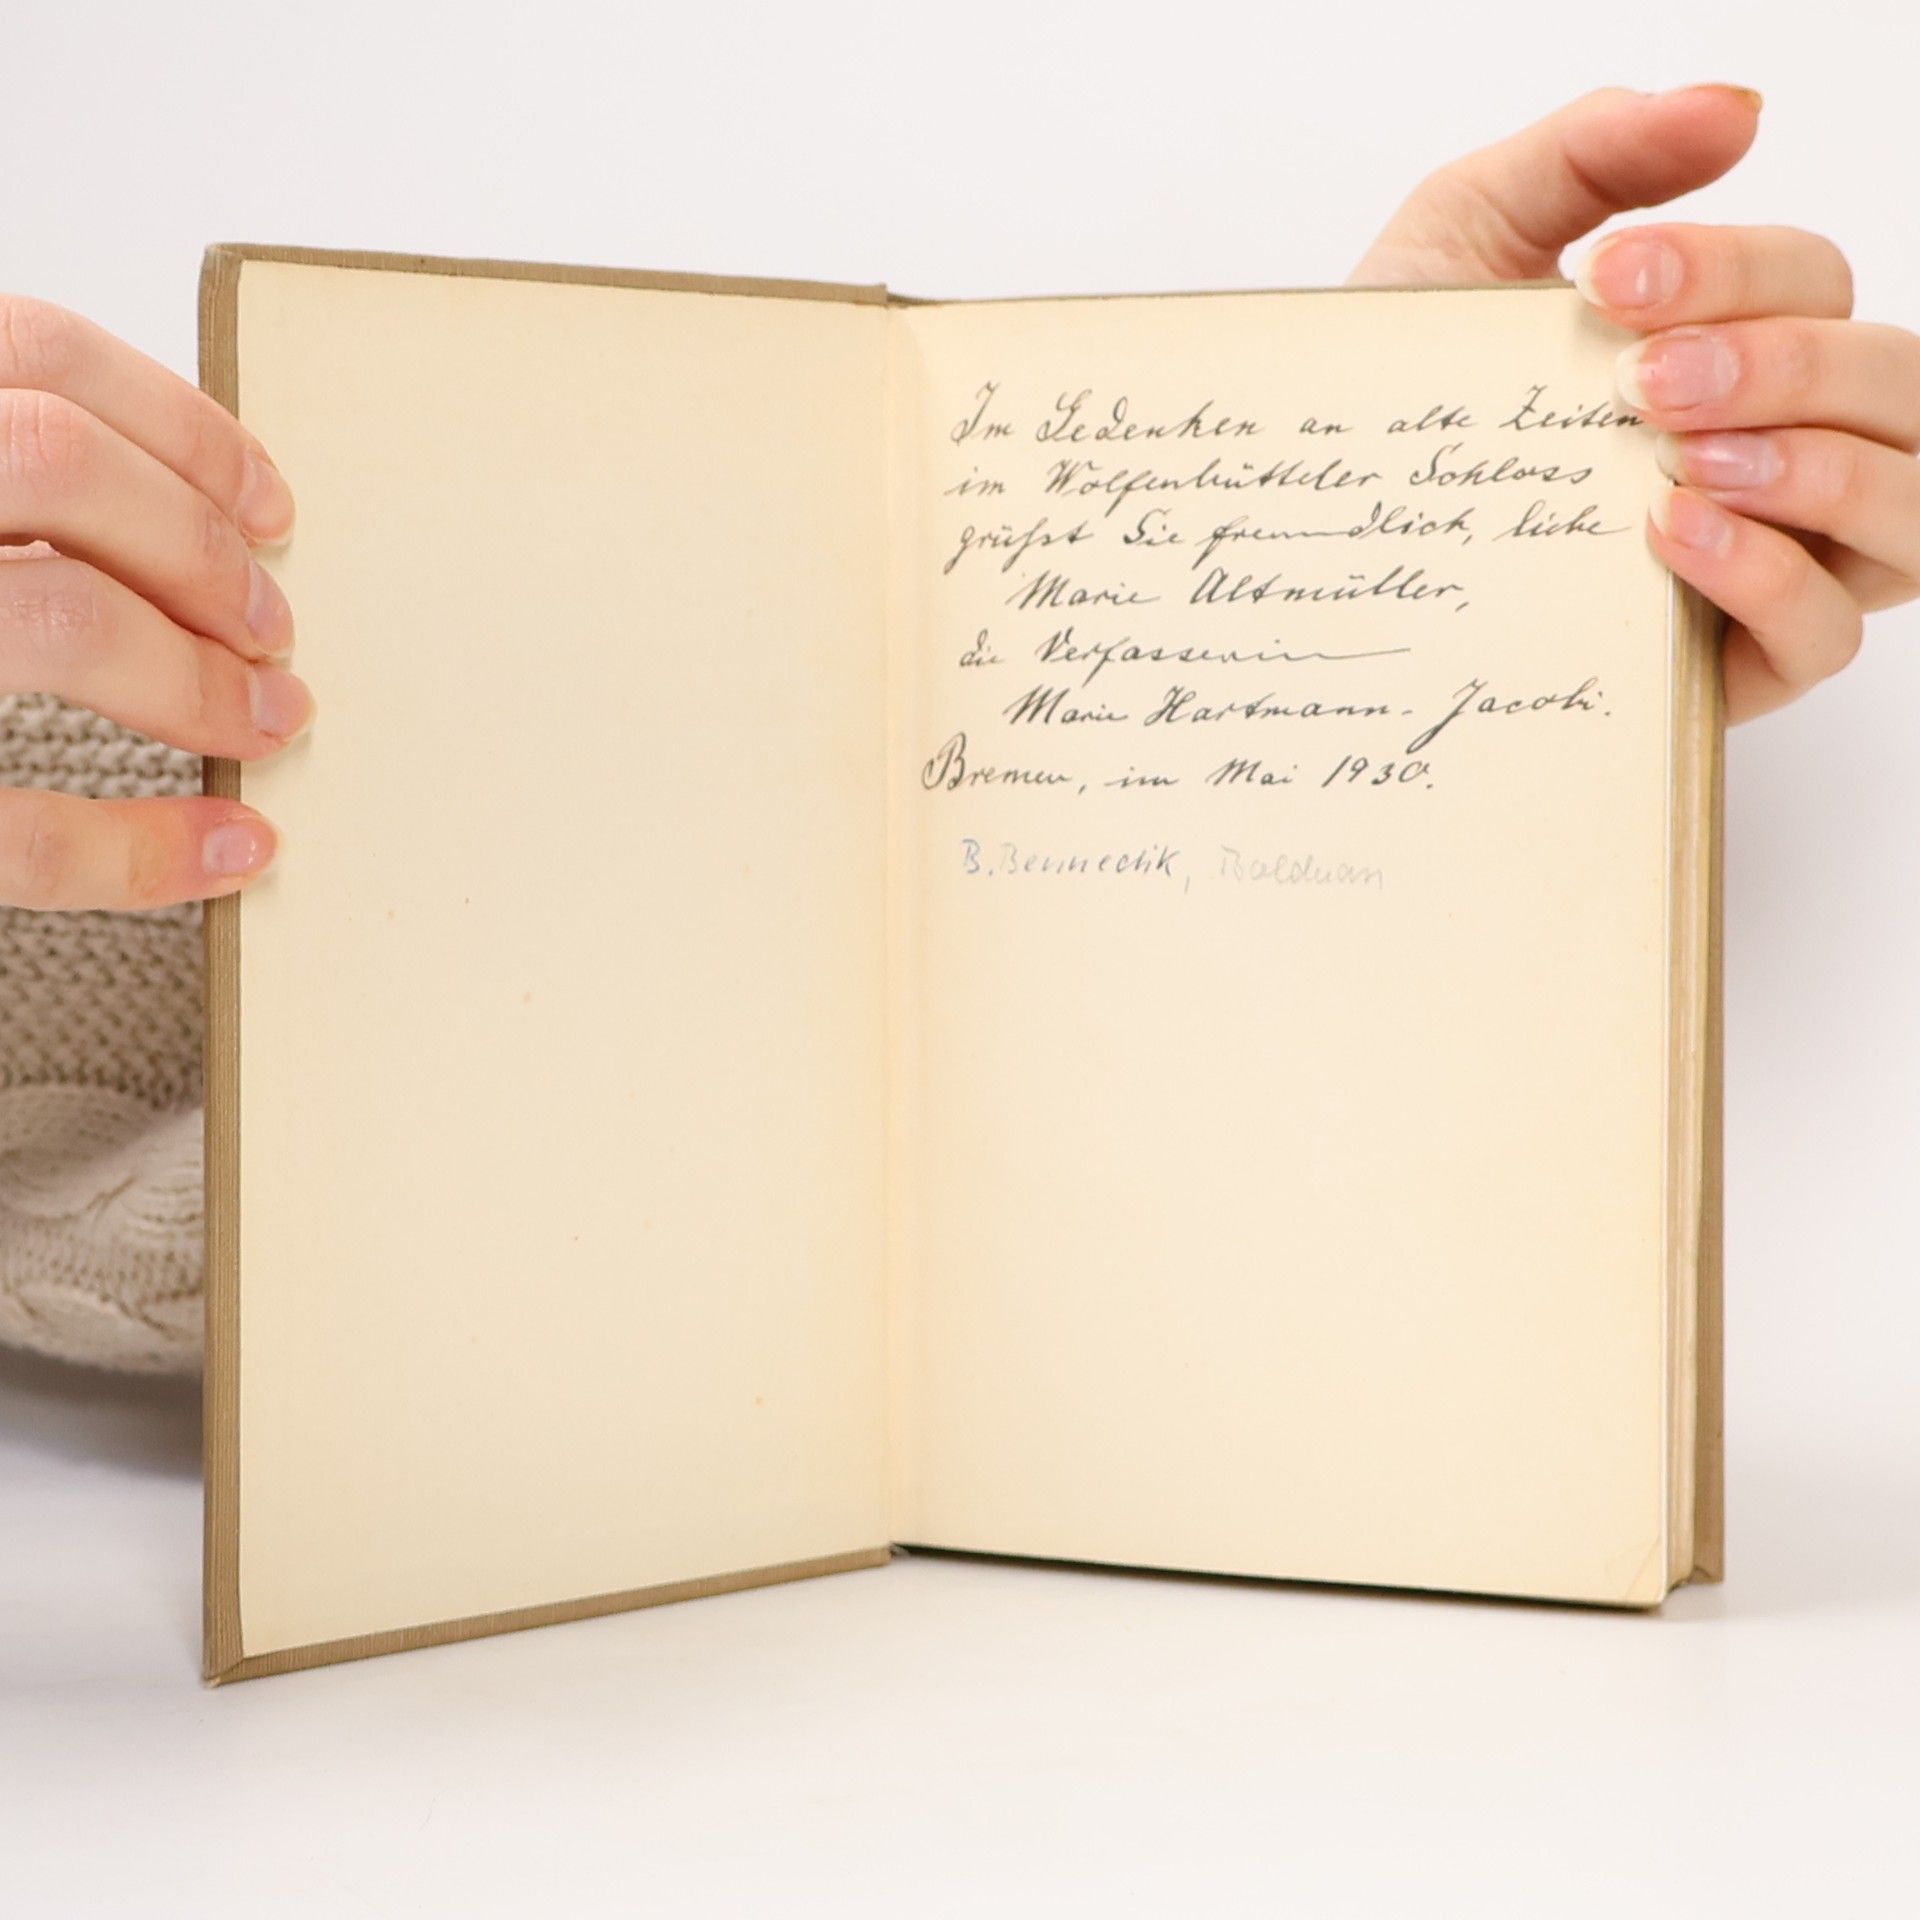 Im Gedenken an alte Zeiten
im Wolfenbütteler Schloss
grüßt Sie freundlich, liebe
Marie Altmüller,
die Verfasserin
Marie Hartmann-Jacobi.
Bremen, im Mai 1930.
B.